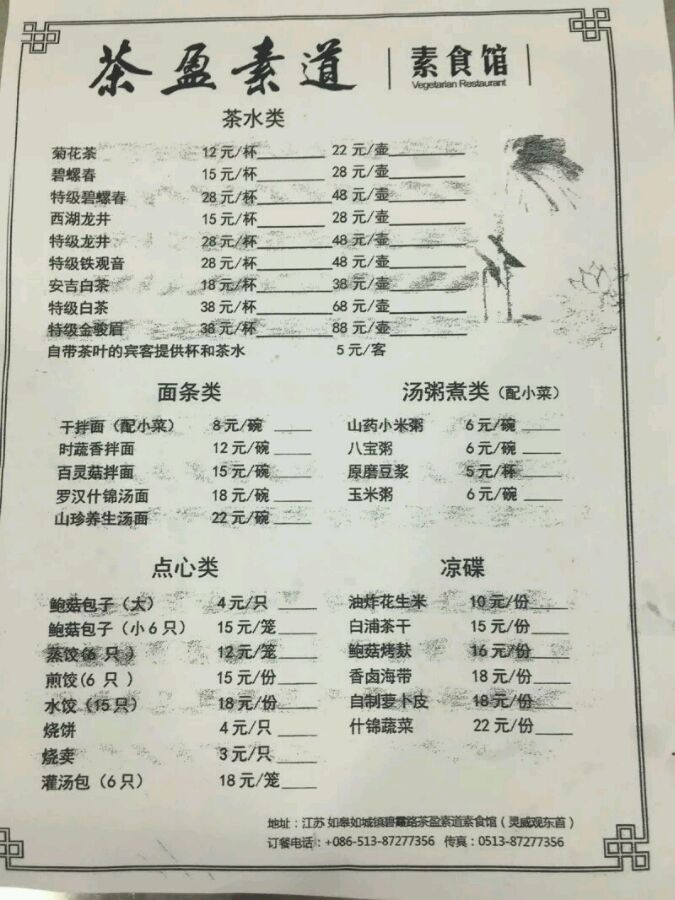 茶盈素道 | 素食馆 |
Vegetarian Restaurant
茶水类
菊花茶 12元/杯______ 22元/壶______
碧螺春 15元/杯______ 28元/壶______
特级碧螺春 28元/杯______ 48元/壶______
西湖龙井 15元/杯______ 28元/壶______
特级龙井 28元/杯______ 48元/壶______
特级铁观音 28元/杯______ 48元/壶______
安吉白茶 18元/杯______ 38元/壶______
特级白茶 38元/杯______ 68元/壶______
特级金骏眉 38元/杯______ 88元/壶______
自带茶叶的宾客提供杯和茶水 5元/客
面条类
干拌面（配小菜） 8元/碗____
时蔬香拌面 12元/碗____
百灵菇拌面 15元/碗____
罗汉什锦汤面 18元/碗____
山珍养生汤面 22元/碗____
汤粥煮类（配小菜）
山药小米粥 6元/碗____
八宝粥 6元/碗____
原磨豆浆 5元/杯____
玉米粥 6元/碗____
点心类
鲍菇包子（大） 4元/只____
鲍菇包子（小6只） 15元/笼____
蒸饺(6只) 12元/笼____
煎饺(6 只 ) 15元/份____
水饺（15只） 18元/份____
烧饼 4元/只____
烧卖 3元/只____
灌汤包（6只） 18元/笼____
凉碟
油炸花生米 10元/份____
白浦茶干 15元/份____
鲍菇烤麸 16元/份____
香卤海带 18元/份____
自制萝卜皮 18元/份____
什锦蔬菜 22元/份____
地址：江苏 如皋如城镇碧霞路茶盈素道素食馆（灵威观东首）
订餐电话：+086-513-87277356 传真：0513-87277356